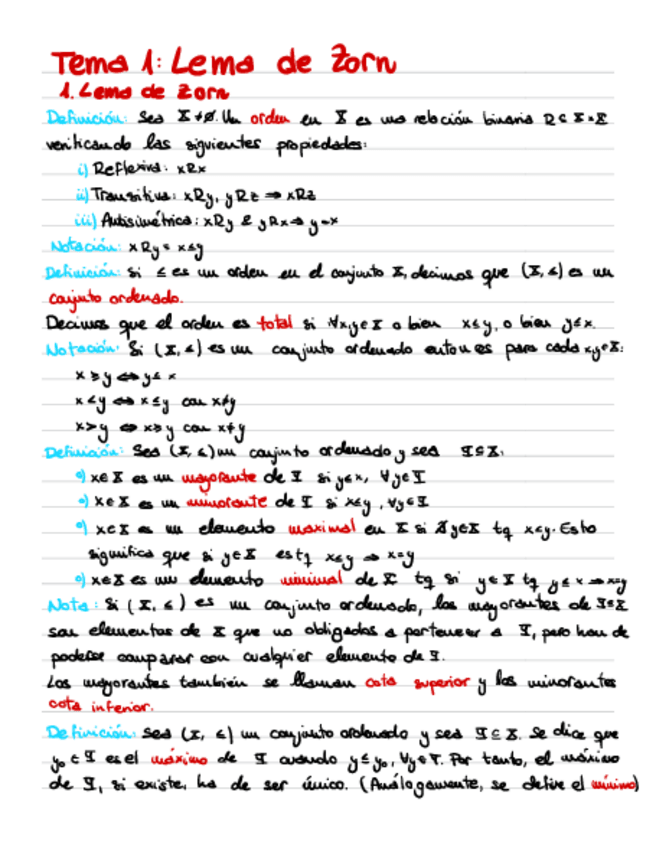 Tema 1: Lema de Zorn
1. Lema de Zorn
Definición: Sea X≠∅. Un orden en X es una relación binaria R⊆X×X
verificando las siguientes propiedades:
i) Reflexiva: xRx
ii) Transitiva: xRy, yRz ⇒ xRz
iii) Antisimétrica: xRy & yRx ⇒ y=x
Notación: xRy ≡ x≤y
Definición: Si ≤ es un orden en el conjunto X, decimos que (X,≤) es un
conjunto ordenado.
Decimos que el orden es total si ∀x,y∈X o bien x≤y, o bien y≤x.
Notación: Si (X,≤) es un conjunto ordenado entonces para cada x,y∈X:
x≥y ⇔ y≤x
x<y ⇔ x≤y con x≠y
x>y ⇔ x≥y con x≠y
Definición: Sea (X,≤) un conjunto ordenado y sea Y⊆X.
o) x∈X es un mayorante de Y si y≤x, ∀y∈Y
o) x∈X es un minorante de Y si x≤y, ∀y∈Y
o) x∈X es un elemento maximal en X si ∄y∈X tq x<y. Esto
significa que si y∈X es tq x≤y ⇒ x=y
o) x∈X es un elemento minimal de X tq si y∈X tq y≤x ⇒ x=y
Nota: Si (X,≤) es un conjunto ordenado, los mayorantes de Y⊆X
son elementos de X que no obligados a pertenecer a Y, pero han de
poderse comparar con cualquier elemento de Y.
Los mayorantes también se llaman cota superior y los minorantes
cota inferior.
Definición: Sea (X,≤) un conjunto ordenado y sea Y⊆X. Se dice que
y₀∈Y es el máximo de Y cuando y≤y₀, ∀y∈Y. Por tanto, el máximo
de Y, si existe, ha de ser único. (Análogamente, se define el mínimo)